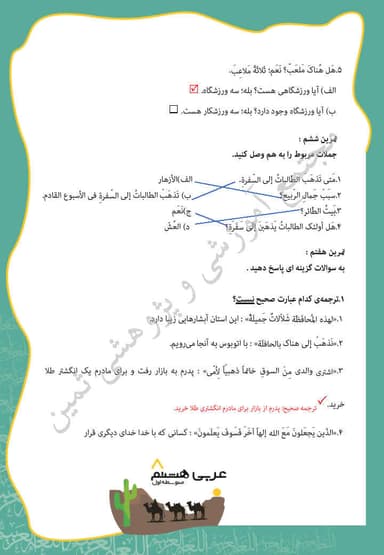 ۵.هَل هُناکَ مَلعَبٌ؟ نَعَم؛ ثَلاثَةُ مَلاعِبَ.
الف) آیا ورزشگاهی هست؟ بله؛ سه ورزشگاه.
ب) آیا ورزشگاه وجود دارد؟ بله؛ سه ورزشکار هست.
تمرین ششم :
جملات مربوط را به هم وصل کنید.
۱.مَتی تَذهَبُ الطالباتُ إلی السَّفرةِ. الف)الأزهار
۲.سَبَبُ جَمالِ الرَّبیعِ؟ ب) تَذهَبُ الطالباتُ إلی السَّفرةِ فی الأسبوع القادم.
۳.بَیتُ الطّائر؟ ج)نَعَم
۴.هَل أولئکَ الطالباتُ یَذهَبنَ إلی سَفرةٍ؟ د) العُشّ
تمرین هفتم :
به سوالات گزینه ای پاسخ دهید .
۱.ترجمه‌ی کدام عبارت صحیح نیست؟
۱.«لِهذِهِ المُحافَظَةِ شَلّالاتٌ جَمیلَةٌ» : این استان آبشارهایی زیبا دارد.
۲.«نَذهَبُ إلی هناکَ بِالحافلَةِ» : با اتوبوس به آنجا می‌رویم.
۳.«اشتری والدی مِنَ السوقِ خاتماً ذهبیاً لِأمّی» : پدرم به بازار رفت و برای مادرم یک انگشتر طلا
خرید. ترجمه صحیح: پدرم از بازار برای مادرم انگشتری طلا خرید.
۴.«الذّین یَجعَلونَ مَعَ الله إلهاً آخَرَ فَسَوفَ یَعلَمونَ» : کسانی که با خدا خدای دیگری قرار
مجتمع آموزشی و پژوهشی ثمین
عربی هشتم
متوسطه اول